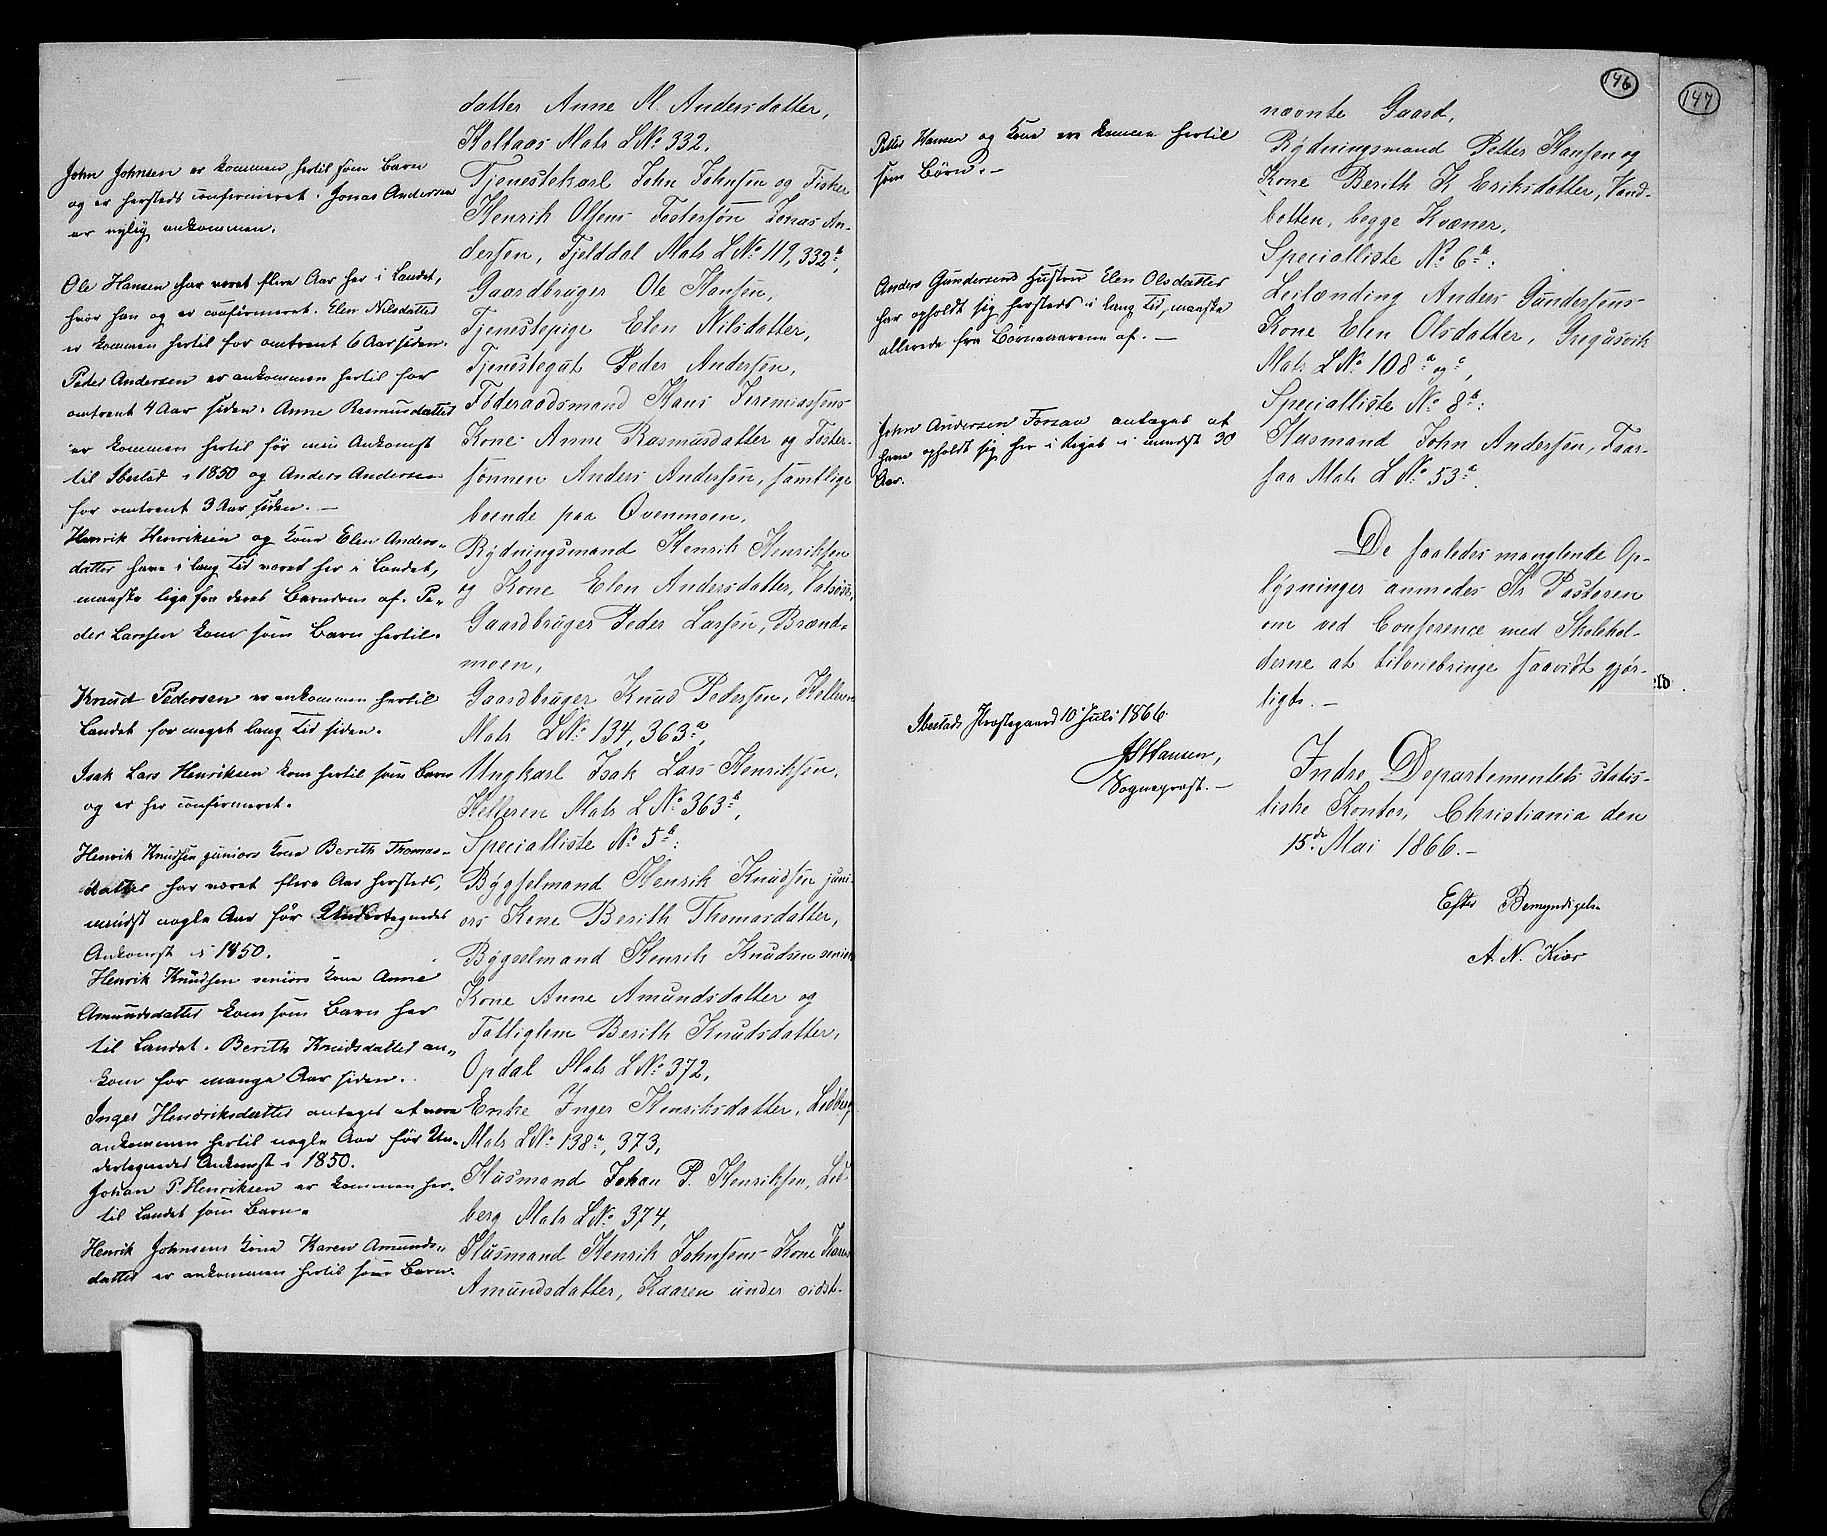 John Johnsen er kommen hertil som Barn
og er hersteds confirmeret. Jonas Andersen
er nylig ankommen.
Ole Hansen har været flere Aar her i Landet,
hvor han og er confirmeret. Elen Nilsdatter
er kommen hertil for omtrent 6 Aar siden.
Peder Andersen er ankommen hertil for
omtrent 4 Aar siden. Anne Rasmusdatter
er kommen hertil før min Ankomst
til Ibestad i 1850 og Anders Andersen
for omtrent 3 Aar siden. —
Henrik Henriksen og Kone Elen Anders-
datter have i lang Tid været her i Landet,
maaske lige fra deres Barndom af. Pe-
der Larsen kom som Barn hertil.
Knud Pedersen er ankommen hertil
Landet for meget lang Tid siden.
Isak Lars Henriksen kom hertil som Barn
og er her confirmeret.
Henrik Knudsen juniors Kone Berith Thomas-
datter har været flere Aar hersteds,
mindst nogle Aar før Undertegnedes
Ankomst i 1850.
Henrik Knudsen seniors Kone Anne
Amundsdatter kom som Barn her
til Landet. Berith Knudsdatter an-
kom for mange Aar siden.
Inger Henriksdatter antages at være
ankommen hertil nogle Aar før Un-
dertegnedes Ankomst i 1850.
Johan P. Henriksen er kommen her-
til Landet som Barn.
Henrik Johnsens Kone Karen Amunds-
datter er ankommen hertil som Barn.
datter Anne M. Andersdatter,
Holtaas Matr LNo 332.
Tjenestekarl John Johnsen og Fisker
Henrik Olsens Fostersøn Jonas An-
dersen, Fjelddal Matr LNo 119, 332b,
Gaardbruger Ole Hansen,
Tjenestepige Elen Nilsdatter,
Tjenestegut Peder Andersen,
Føderaadsmand Hans Jeremiassens
Kone Anne Rasmusdatter og Foster-
sønnen Anders Andersen, samtlige
boende paa Ovenmoen.
Rydningsmand Henrik Henriksen
og Kone Elen Andersdatter,
Gaardbruger Peder Larsen, Brand-
moen,
Gaardbruger Knud Pedersen, Helleren
Matr LNo 134, 363a,
Ungkarl Isak Lars Henriksen,
Helleren Matr LNo 363b,
Specialliste No 5b:
Bygselmand Henrik Knudsen juni-
ors Kone Berith Thomasdatter,
Bygselmand Henrik Knudsen seniors
Kone Anne Amundsdatter og
Fattiglem Berith Knudsdatter,
Opdal Matr LNo 372,
Enke Inger Henriksdatter, Ledberg
Matr LNo 138a, 373,
Husmand Johan P. Henriksen, Led-
berg Matr LNo 374,
Husmand Henrik Johnsens Kone Karen
Amundsdatter, Kaaren under sidst-
146
147
Petter Hansen og Kone ere komne hertil
som Børn. —
Anders Gundersens Hustru Elen Olsdatter
har opholdt sig hersteds i lang Tid, maaske
allerede fra Børneaarene af. —
John Andersen Forsaa antages at
have opholdt sig her i Riget i mindst 30
Aar.
Ibestads Præstegaard 10 Juli 1866.
Hansen,
Sogneprest. —
nævnte Gaard,
Rydningsmand Petter Hansen og
Kone Berith K Eriksdatter, Vand-
botten, begge Kvæner,
Specialliste No 6b:
Leilænding Anders Gundersens
Kone Elen Olsdatter, Gregusvik
Matr LNo 108a og c,
Specialliste No 8b:
Husmand John Andersen, Faar-
saa Matr LNo 53a.
De saaledes manglende Op-
lysninger anmodes Hr Pastoren
om ved Conference med Skolehol-
derne at tilveiebringe saavidt gjør-
ligt. —
Indre Departementets statis-
tiske Kontor, Christiania den
15de Mai 1866. —
Efter Bemyndigelse
A. N. Kiær
eld